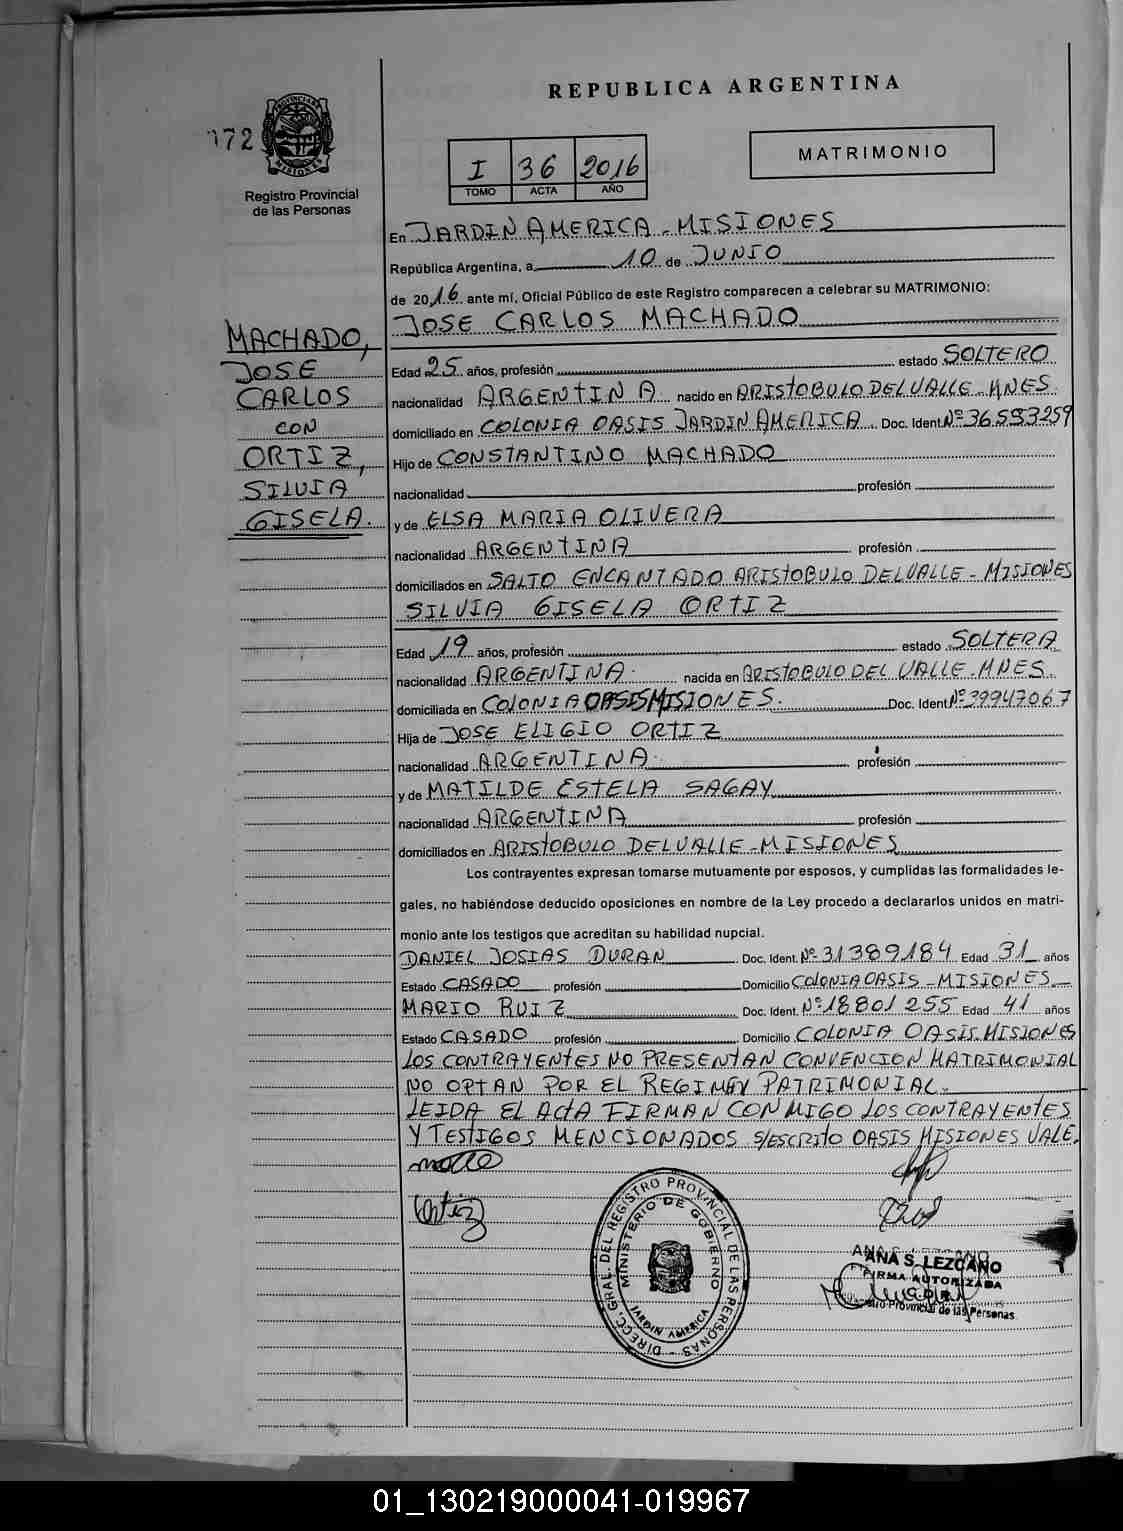 REPUBLICA ARGENTINA
172
Registro Provincial
de las Personas
I 36 2016
TOMO ACTA AÑO
MATRIMONIO
En JARDIN AMERICA - MISIONES
República Argentina, a 10 de JUNIO
de 2016 ante mí, Oficial Público de este Registro comparecen a celebrar su MATRIMONIO:
JOSE CARLOS MACHADO
MACHADO,
JOSE
CARLOS
CON
ORTIZ,
SILVIA
GISELA.
Edad 25 años, profesión estado SOLTERO
nacionalidad ARGENTINA nacido en ARISTOBULO DEL VALLE - MNES.
domiciliado en COLONIA OASIS JARDIN AMERICA Doc. Ident. Nº 36.593259
Hijo de CONSTANTINO MACHADO
nacionalidad profesión
y de ELSA MARIA OLIVERA
nacionalidad ARGENTINA profesión
domiciliados en SALTO ENCANTADO ARISTOBULO DEL VALLE - MISIONES
SILVIA GISELA ORTIZ
Edad 19 años, profesión estado SOLTERA
nacionalidad ARGENTINA. nacida en ARISTOBULO DEL VALLE - MNES.
domiciliada en COLONIA OASIS MISIONES. Doc. Ident. Nº 39947067
Hija de JOSE ELIGIO ORTIZ
nacionalidad ARGENTINA. profesión
y de MATILDE ESTELA SAGAY
nacionalidad ARGENTINA profesión
domiciliados en ARISTOBULO DEL VALLE - MISIONES
Los contrayentes expresan tomarse mutuamente por esposos, y cumplidas las formalidades le-
gales, no habiéndose deducido oposiciones en nombre de la Ley procedo a declararlos unidos en matri-
monio ante los testigos que acreditan su habilidad nupcial.
DANIEL JOSIAS DURAN Doc. Ident. Nº 31389184 Edad 31 años
Estado CASADO profesión Domicilio COLONIA OASIS - MISIONES
MARIO RUIZ Doc. Ident. Nº 18801255 Edad 41 años
Estado CASADO profesión Domicilio COLONIA OASIS. MISIONES
LOS CONTRAYENTES NO PRESENTAN CONVENCION MATRIMONIAL
NO OPTAN POR EL REGIMEN PATRIMONIAL.
LEIDA EL ACTA FIRMAN CONMIGO LOS CONTRAYENTES
Y TESTIGOS MENCIONADOS S/ESCRITO OASIS MISIONES VALE.
Ortiz
DIRECC. GRAL. DEL REGISTRO PROVINCIAL DE LAS PERSONAS
MINISTERIO DE GOBIERNO
JARDIN AMERICA
ANA S. LEZCANO
FIRMA AUTORIZADA
Registro Provincial de las Personas
01_130219000041-019967